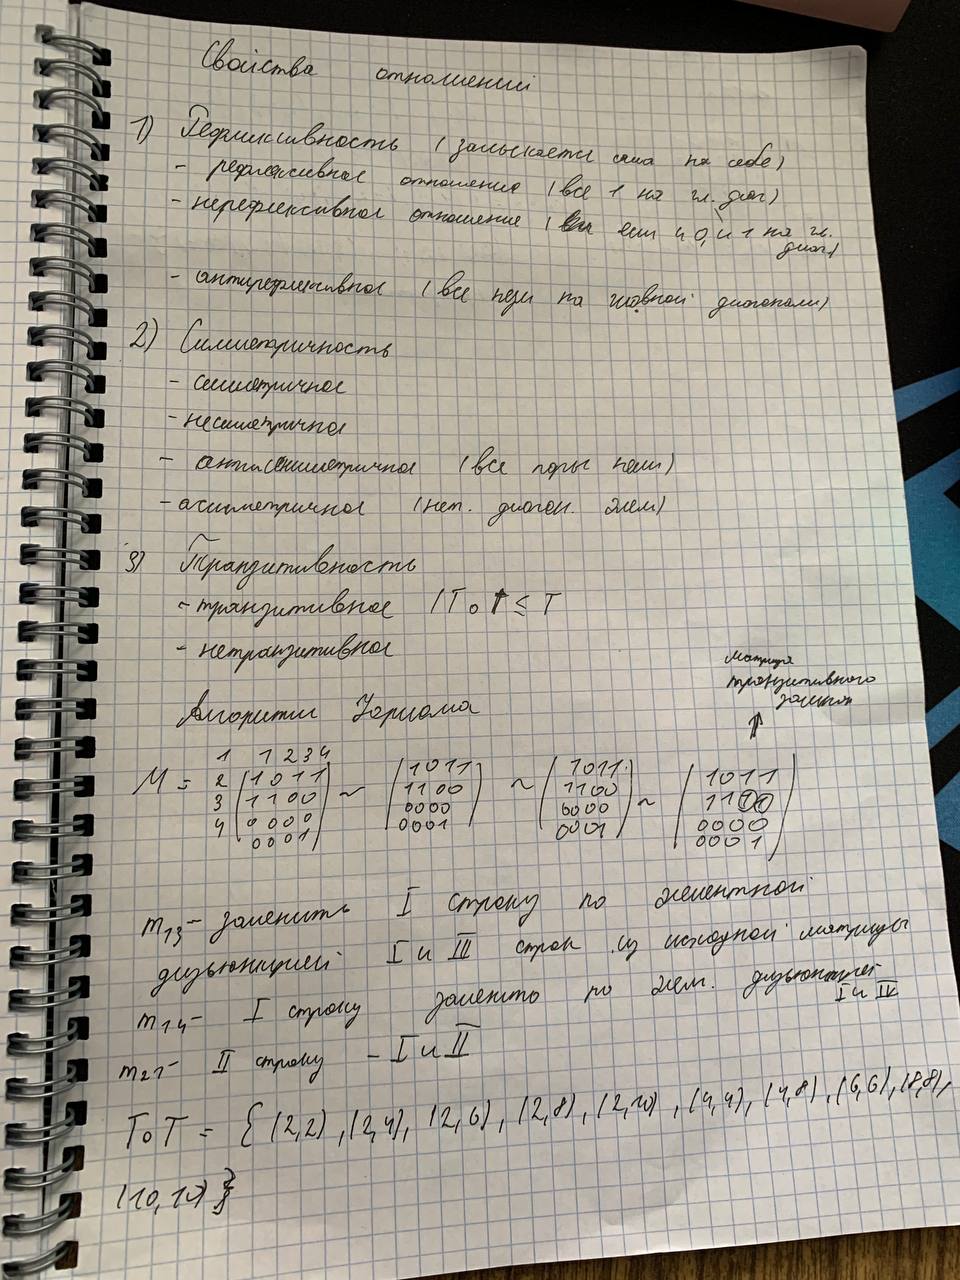 Свойства отношений
1) Рефлексивность (замыкается сама на себе)
- рефлексивное отношение (все 1 на гл. диаг)
- нерефлексивное отношение ( если и 0, и 1 на гл.
диаг)
- антирефлексивное (все нули на главной диагонали)
2) Симметричность
- симметричное
- несиметричное
- антисимметричное (все пары нули)
- асиметричное (нет. диагон. элем)
3) Транзитивность
- транзитивное (T o T ≤ T
- нетранзитивное
Матрица
транзитивного
замыкан
Алгоритм Уоршала
1 1 2 3 4
M = 2 (1 0 1 1 ~ (1 0 1 1) ~ (1 0 1 1) ~ (1 0 1 1)
3 1 1 0 0 1 1 0 0 1 1 0 0 1 1 0 0
4 0 0 0 0 0 0 0 0 0 0 0 0 0 0 0 0
0 0 0 1) 0 0 0 1 0 0 0 1 0 0 0 1
m13 - заменить I строку по элементной
дизъюнкцией I и III строк из исходной матрицы
m14 - I строку заменить по элем. дизъюнкцией
I и IV
m21 - II строку - I и II
T o T = { (2,2), (2,4), (2,6), (2,8), (2,10), (4,4), (4,8), (6,6), (8,8),
(10,10) }